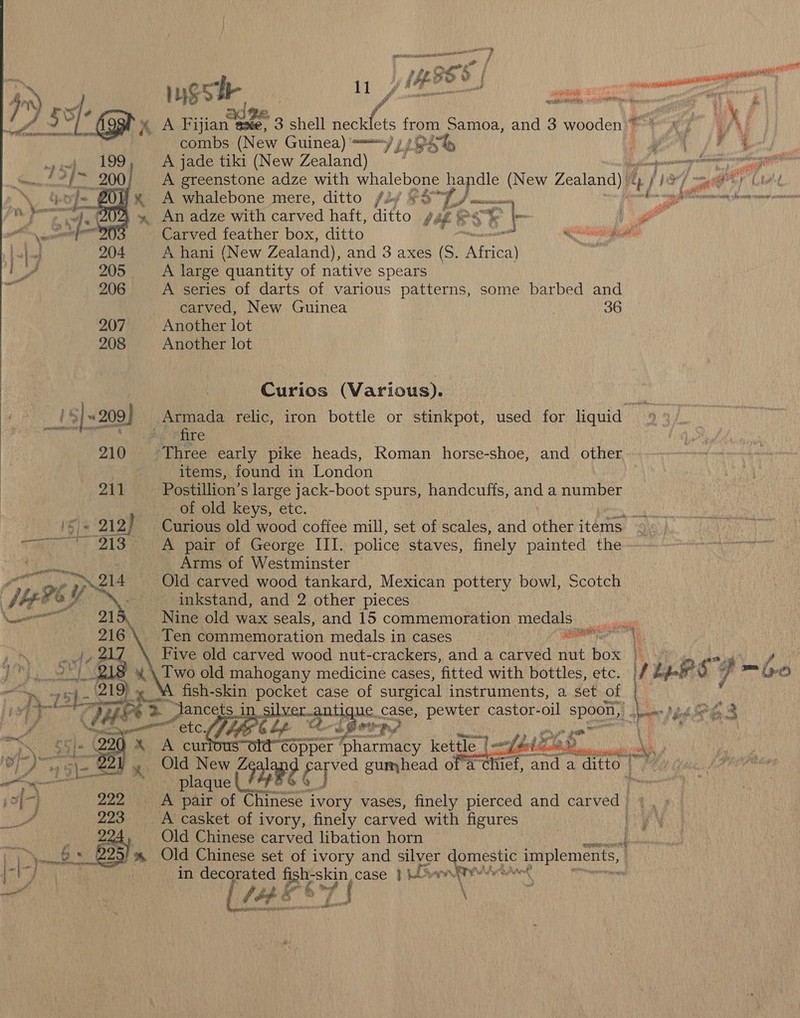 11
198 A Fijian axe, 3 shell necklets from Samoa, and 3 wooden
adze
combs (New Guinea)
199 A jade tiki (New Zealand)
200 A greenstone adze with whalebone handle (New Zealand)
201 A whalebone mere, ditto
202 An adze with carved haft, ditto
203 Carved feather box, ditto
204 A hani (New Zealand), and 3 axes (S. Africa)
205 A large quantity of native spears
206 A series of darts of various patterns, some barbed and
carved, New Guinea 36
207 Another lot
208 Another lot
Curios (Various).
15/- 209 Armada relic, iron bottle or stinkpot, used for liquid
fire
210 Three early pike heads, Roman horse-shoe, and other
items, found in London
211 Postillion's large jack-boot spurs, handcuffs, and a number
of old keys, etc.
15/- 212 Curious old wood coffee mill, set of scales, and other items
213 A pair of George III. police staves, finely painted the
Arms of Westminster
214 Old carved wood tankard, Mexican pottery bowl, Scotch
inkstand, and 2 other pieces
215 Nine old wax seals, and 15 commemoration medals
216 Ten commemoration medals in cases
217 Five old carved wood nut-crackers, and a carved nut box
218 x Two old mahogany medicine cases, fitted with bottles, etc.
219 x A fish-skin pocket case of surgical instruments, a set of
lancets in silver antique case, pewter castor-oil spoon,
etc.
220 x A curious old copper pharmacy kettle
221 x Old New Zealand carved gumhead of a chief, and a ditto
plaque
222 A pair of Chinese ivory vases, finely pierced and carved
223 A casket of ivory, finely carved with figures
224 Old Chinese carved libation horn
225 x Old Chinese set of ivory and silver domestic implements,
in decorated fish-skin case